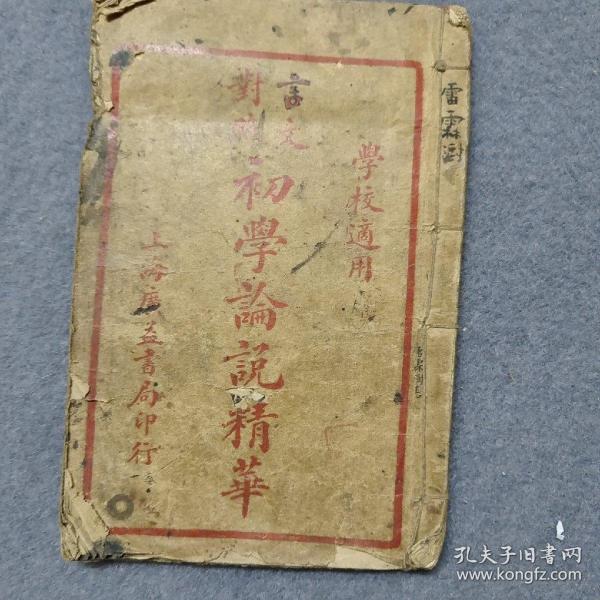 雷霖澍
學校適用
言文
對照
初學論說精華
上海廣益書局印行
孔夫子旧书网
www.kongfz.com